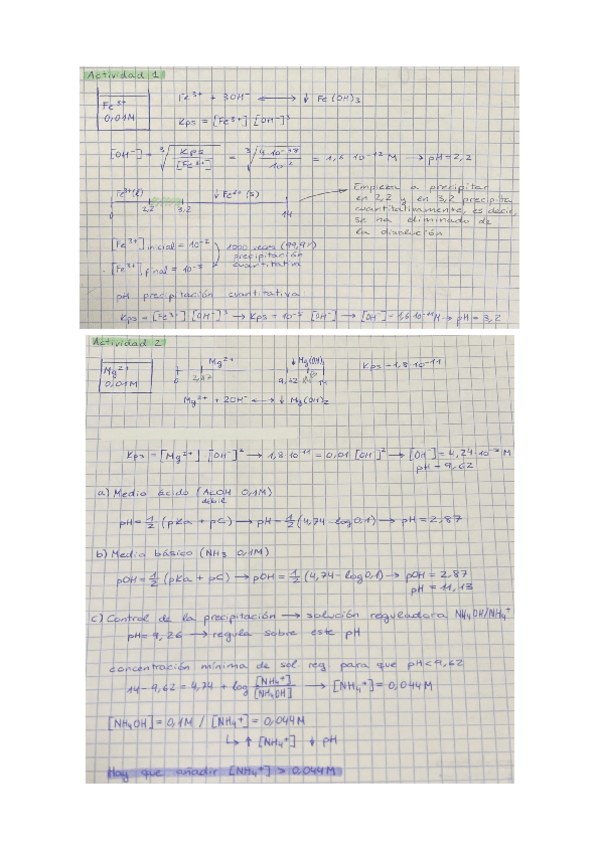 Actividad 1
Fe³⁺
0,01M
Fe³⁺ + 3OH⁻ ⟷ ↓ Fe(OH)₃
Kps = [Fe³⁺] [OH⁻]³
[OH⁻] = ∛(Kps/[Fe³⁺]) = ∛(4·10⁻³⁸/10⁻²) = 1,6·10⁻¹² M → pH = 2,2
↓ Fe (s)
0 2,2 3,2 14
Empieza a precipitar
en 2,2 y en 3,2 precipita
cuantitativamente, es decir,
se ha eliminado de
la disolución
[Fe³⁺] inicial = 10⁻²
1000 veces (99,9%)
precipitación
cuantitativa
[Fe³⁺] final = 10⁻⁵
pH precipitación cuantitativa:
Kps = [Fe³⁺] [OH⁻]³ → Kps = 10⁻⁵ [OH⁻] → [OH⁻] = 1,6·10⁻¹¹M → pH = 3,2
Actividad 2
Mg²⁺
0,01M
Mg²⁺ ↓ Mg(OH)₂
0 2,87 9,62 14
Kps = 1,8·10⁻¹¹
Mg²⁺ + 2OH⁻ ⟷ ↓ Mg(OH)₂
Kps = [Mg²⁺] [OH⁻]² → 1,8·10⁻¹¹ = 0,01 [OH⁻]² → [OH⁻] = 4,24·10⁻⁵ M
pH = 9,62
a) Medio ácido (AcOH 0,1M)
débil
pH = ½ (pKa + pC) → pH = ½ (4,74 - log 0,1) → pH = 2,87
b) Medio básico (NH₃ 0,1M)
pOH = ½ (pKa + pC) → pOH = ½ (4,74 - log 0,1) → pOH = 2,87
pH = 11,13
c) Control de la precipitación → solución reguladora NH₄OH/NH₄⁺
pH = 9,26 → regula sobre este pH
concentración mínima de sol reg para que pH < 9,62
14 - 9,62 = 4,74 + log [NH₄⁺]/[NH₄OH] → [NH₄⁺] = 0,044M
[NH₄OH] = 0,1M / [NH₄⁺] = 0,044M
↳ ↑ [NH₄⁺] ↓ pH
Hay que añadir [NH₄⁺] > 0,044M